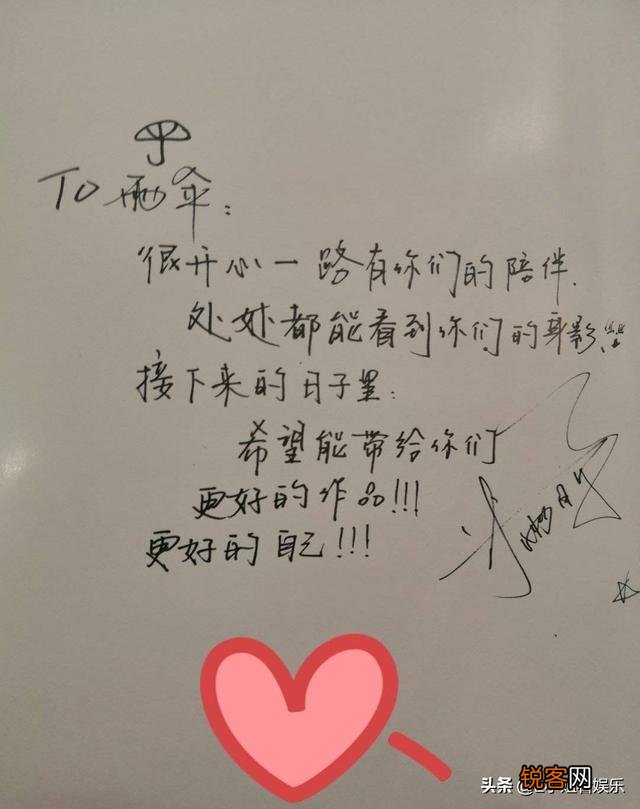 To 雨伞：
很开心一路有你们的陪伴.
处处都能看到你们的身影!!!
接下来的日子里：
希望能带给你们
更好的作品!!!
更好的自己!!!
头条
锐客网
娱乐